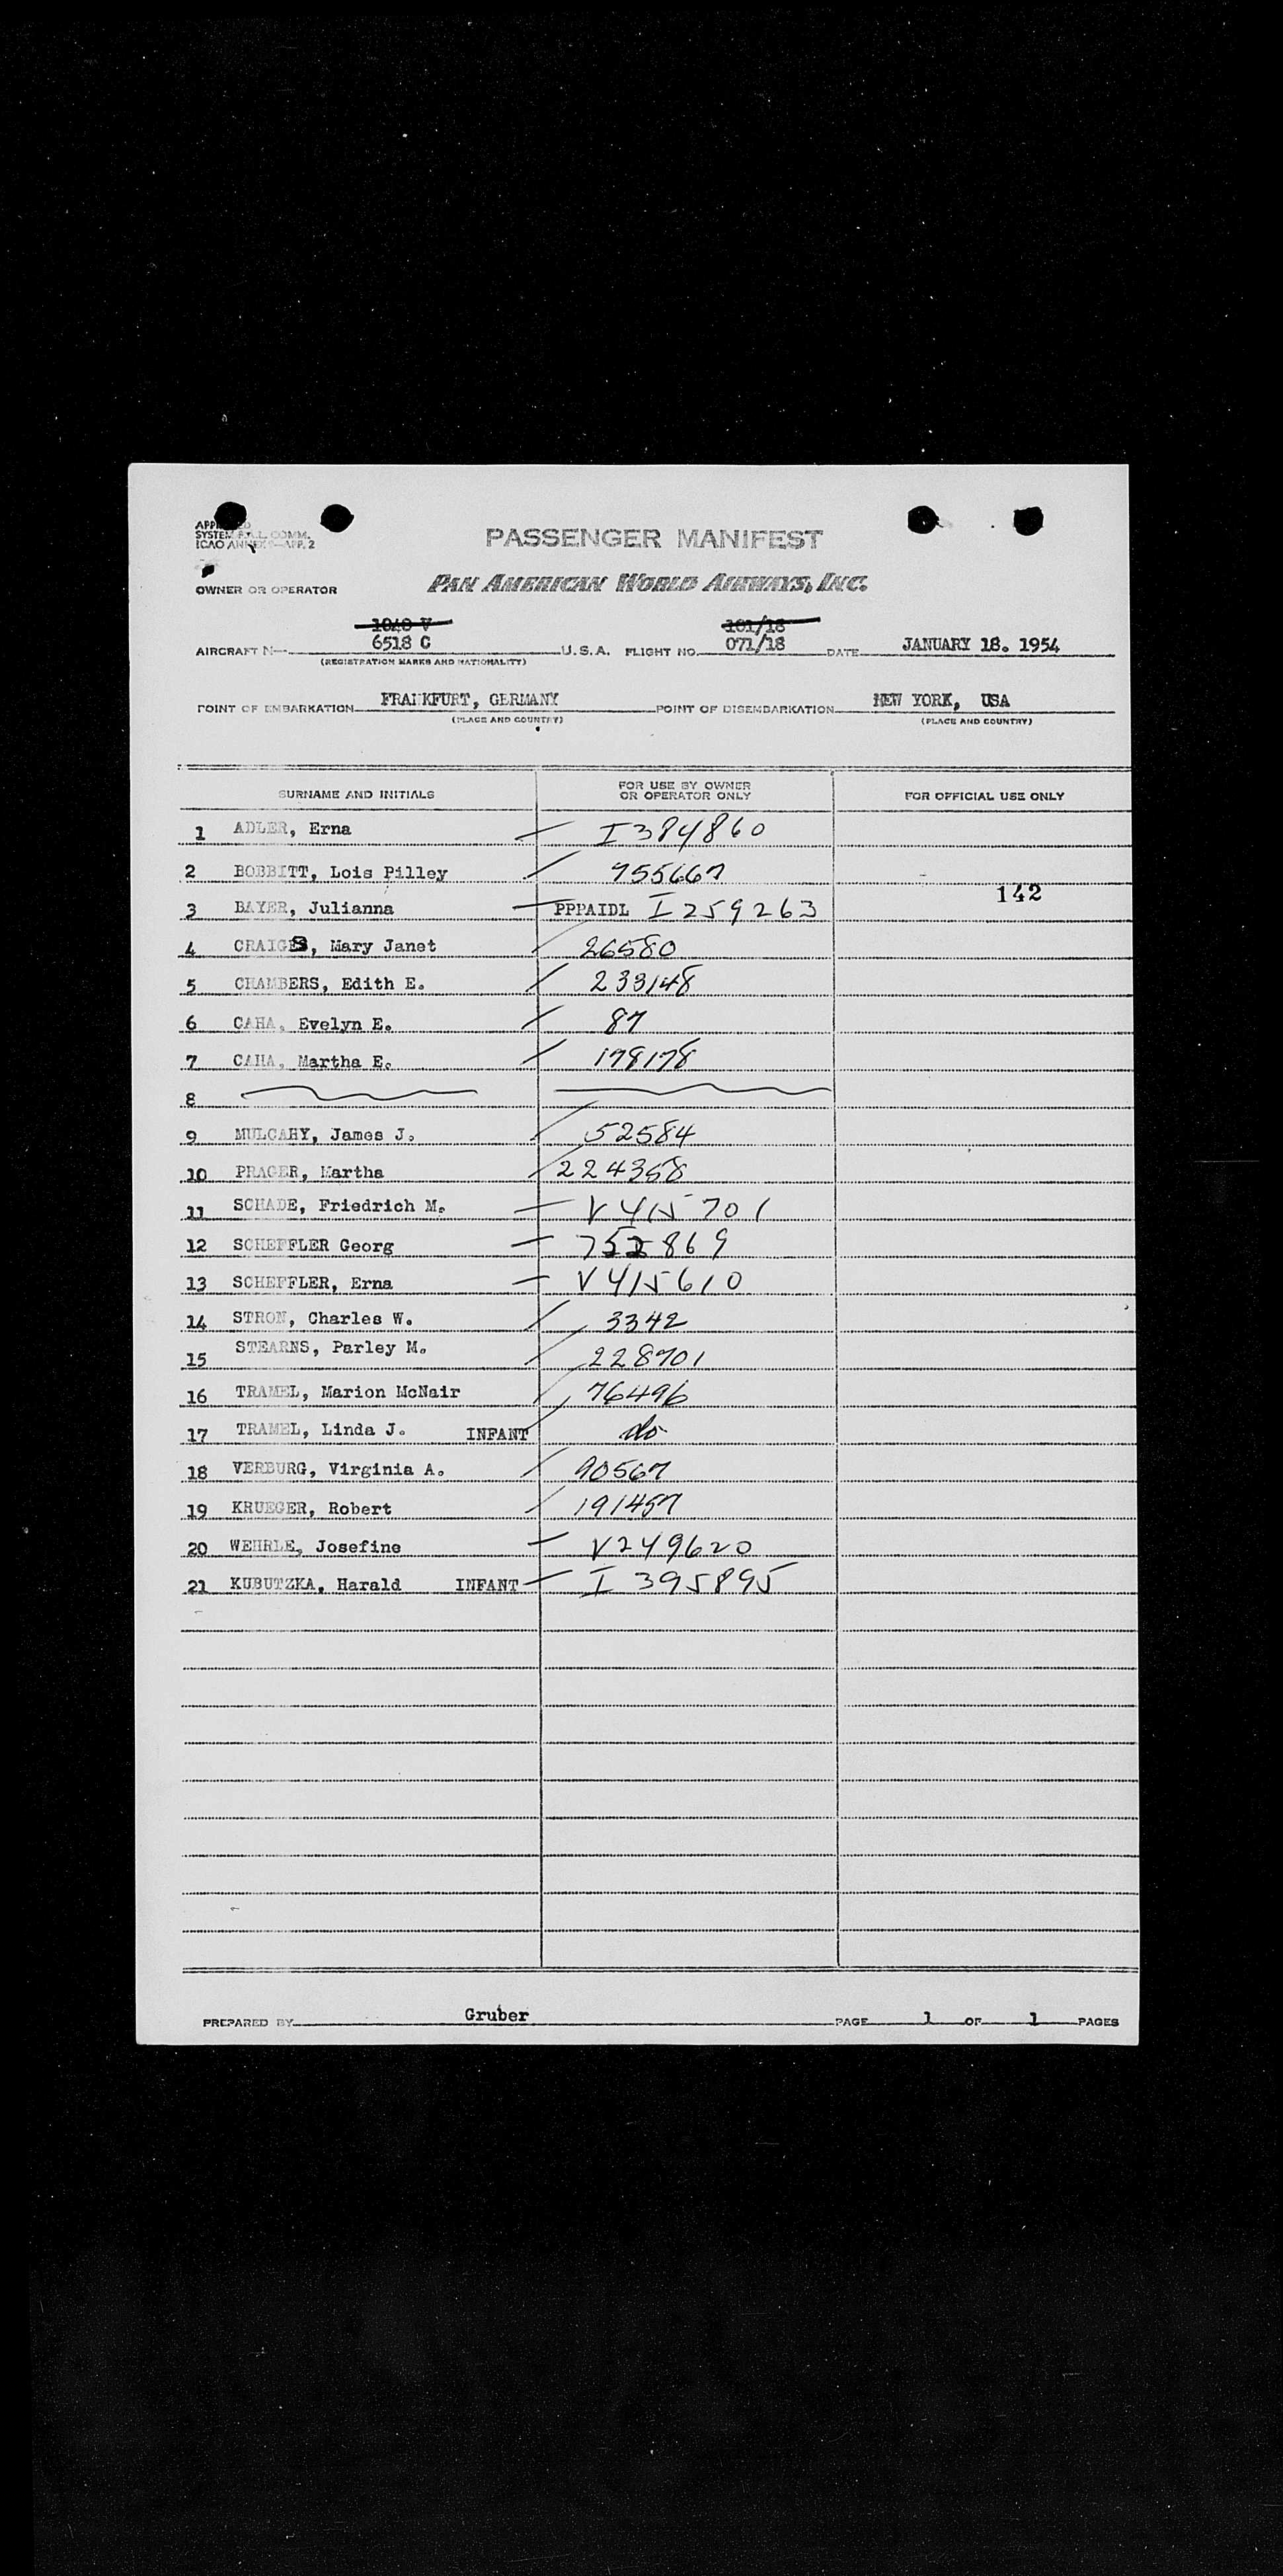 PASSENGER MANIFEST
SYSTEM F.A.L. COMM.
ICAO ANNEX 9—APP. 2
OWNER OR OPERATOR PAN AMERICAN WORLD AIRWAYS, INC.
1040 V 101/18
AIRCRAFT N— 6518 C U.S.A. FLIGHT NO. 071/18 DATE JANUARY 18. 1954
(REGISTRATION MARKS AND NATIONALITY)
POINT OF EMBARKATION FRANKFURT, GERMANY POINT OF DISEMBARKATION NEW YORK, USA
(PLACE AND COUNTRY) (PLACE AND COUNTRY)
SURNAME AND INITIALS FOR USE BY OWNER OR OPERATOR ONLY FOR OFFICIAL USE ONLY
1 ADLER, Erna — I384860
2 BOBBITT, Lois Pilley / 755667
142
3 BAYER, Julianna — PPPAIDL I259263
4 CRAIGS, Mary Janet / 26580
5 CHAMBERS, Edith E. / 233148
6 CAHA, Evelyn E. / 87
7 CAHA, Martha E. / 178178
8
9 MULCAHY, James J. / 52584
10 PRAGER, Martha / 224358
11 SCHADE, Friedrich M. — V415701
12 SCHEFFLER Georg — 752869
13 SCHEFFLER, Erna — V415610
14 STRON, Charles W. / 3342
15 STEARNS, Parley M. / 228701
16 TRAMEL, Marion McNair / 76496
17 TRAMEL, Linda J. INFANT / do
18 VERBURG, Virginia A. / 90567
19 KRUEGER, Robert / 191457
20 WEHRLE, Josefine — V249620
21 KUBUTZKA, Harald INFANT — I 395895
PREPARED BY Gruber PAGE 1 OF 1 PAGES